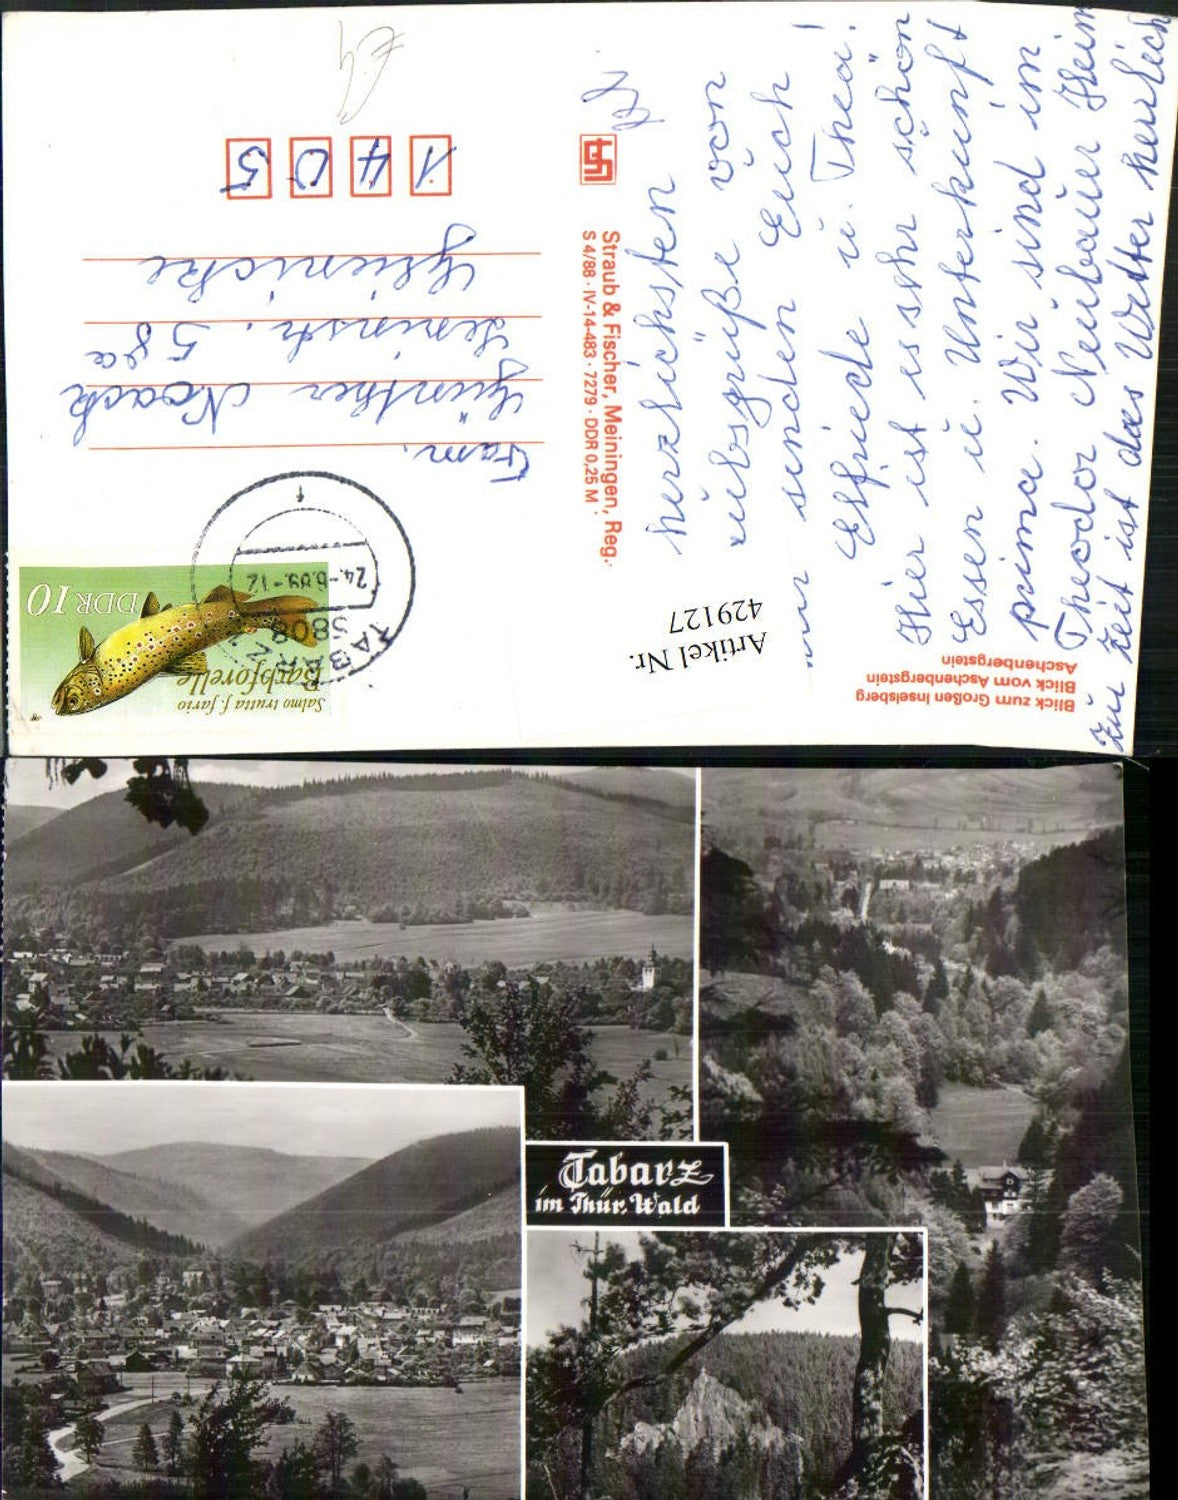 Herzlichsten
Urlaubsgrüße von
uns senden Euch
Elfriede u. Thea!
Hier ist es sehr schön
Essen u. Unterkunft
prima. Wir sind im
Theodor Neubauer Heim
Zur Zeit ist das Wetter herrlich
Blick zum Großen Inselsberg
Blick vom Aschenbergstein
Aschenbergstein
Artikel Nr.
429127
Straub & Fischer, Meiningen, Reg.
S 4/88 · IV-14-483 · 7279 · DDR 0,25 M
Salmo trutta f. fario
Bachforelle
DDR 10
TABARZ
5808
24.-6.89.-12
Fam.
Günther Noack
Leninstr. 58a
Glienicke
1405
Tabarz
im Thür. Wald